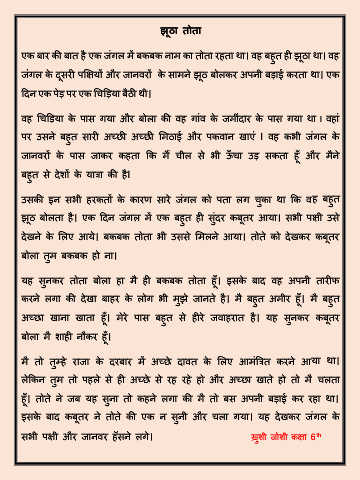 झूठा तोता
एक बार की बात है एक जंगल में बकबक नाम का तोता रहता था। वह बहुत ही झूठा था। वह
जंगल के दूसरी पक्षियों और जानवरों के सामने झूठ बोलकर अपनी बड़ाई करता था। एक
दिन एक पेड़ पर एक चिड़िया बैठी थी।
वह चिडिया के पास गया और बोला की वह गांव के जमींदार के पास गया था। वहां
पर उसने बहुत सारी अच्छी अच्छी मिठाई और पकवान खाएं । वह कभी जंगल के
जानवरों के पास जाकर कहता कि मैं चील से भी ऊँचा उड़ सकता हूँ और मैंने
बहुत से देशों के यात्रा की है।
उसकी इन सभी हरकतों के कारण सारे जंगल को पता लग चुका था कि वह बहुत
झूठ बोलता है। एक दिन जंगल में एक बहुत ही सुंदर कबूतर आया। सभी पक्षी उसे
देखने के लिए आये। बकबक तोता भी उससे मिलने आया। तोते को देखकर कबूतर
बोला तुम बकबक हो ना।
यह सुनकर तोता बोला हा मै ही बकबक तोता हूँ। इसके बाद वह अपनी तारीफ
करने लगा की देखा बाहर के लोग भी मुझे जानते है। मै बहुत अमीर हूँ। मै बहुत
अच्छा खाना खाता हूँ। मेरे पास बहुत से हीरे जवाहरात है। यह सुनकर कबूतर
बोला मै शाही नौकर हूँ।
मै तो तुम्हे राजा के दरबार में अच्छे दावत के लिए आमंत्रित करने आया था।
लेकिन तुम तो पहले से ही अच्छे से रह रहे हो और अच्छा खाते हो तो मै चलता
हूँ। तोते ने जब यह सुना तो कहने लगा की मै तो बस अपनी बड़ाई कर रहा था।
इसके बाद कबूतर ने तोते की एक न सुनी और चला गया। यह देखकर जंगल के
सभी पक्षी और जानवर हँसने लगे। खुशी जोशी कक्षा 6th